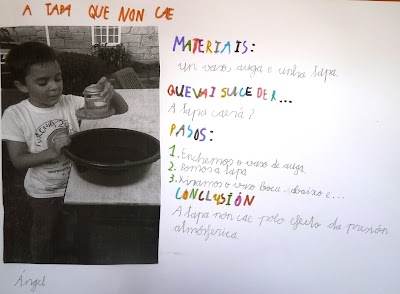 A TAPA QUE NON CAE
MATERIAIS:
Un vaso, auga e unha tapa.
QUE VAI SUCEDER...
A tapa caerá?
PASOS:
1. Enchemos o vaso de auga.
2. Pomos a tapa
3. Xiramos o vaso boca abaixo e...
CONCLUSIÓN
A tapa non cae polo efecto da presión
atmosférica.
Ángel